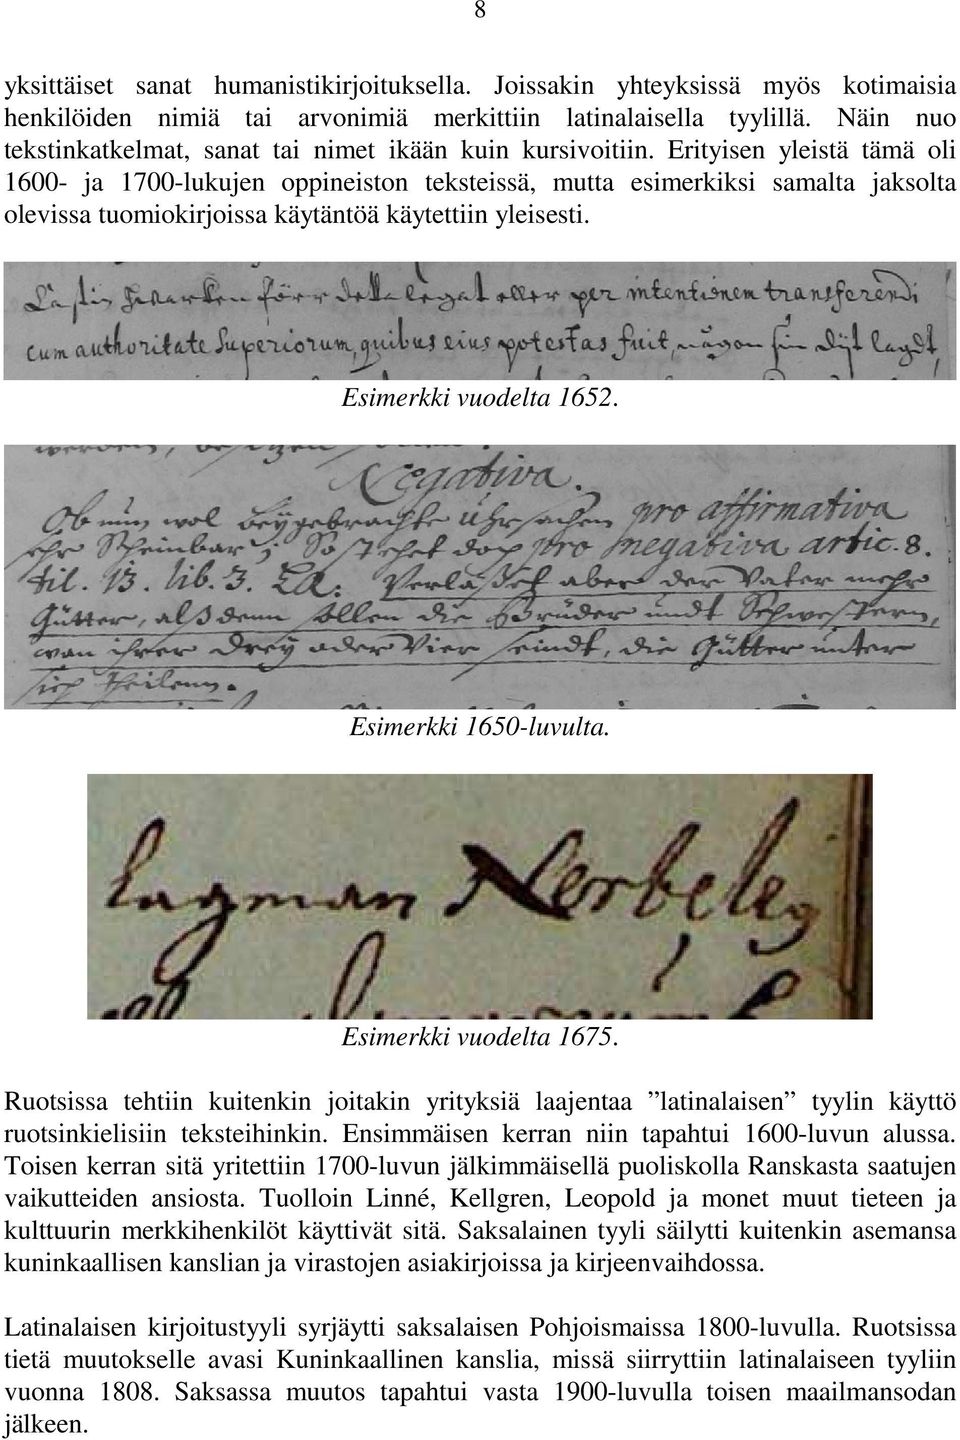 8
yksittäiset sanat humanistikirjoituksella. Joissakin yhteyksissä myös kotimaisia
henkilöiden nimiä tai arvonimiä merkittiin latinalaisella tyylillä. Näin nuo
tekstinkatkelmat, sanat tai nimet ikään kuin kursivoitiin. Erityisen yleistä tämä oli
1600- ja 1700-lukujen oppineiston teksteissä, mutta esimerkiksi samalta jaksolta
olevissa tuomiokirjoissa käytäntöä käytettiin yleisesti.
hwarken förr detta legat eller per intentionem transferendi
cum authoritate Superiorum, quibus eius potestas fuit, någon sin dijt lagdt,
Esimerkki vuodelta 1652.
werden, besitzen
Negativa.
Ob nun wol beygebrachte Uhrsachen pro affirmativa
sehr Scheinbar; So stehet doch pro negativa artic. 8.
til. 13. lib. 3. LA: Verläßet aber der Vater mehr
Gütter, alß denn sollen die Brüder undt Schwestern,
wan ihrer drey oder Vier seindt, die Gütter unter
sich theilenn.
Esimerkki 1650-luvulta.
lagman
Esimerkki vuodelta 1675.
Ruotsissa tehtiin kuitenkin joitakin yrityksiä laajentaa ”latinalaisen” tyylin käyttö
ruotsinkielisiin teksteihinkin. Ensimmäisen kerran niin tapahtui 1600-luvun alussa.
Toisen kerran sitä yritettiin 1700-luvun jälkimmäisellä puoliskolla Ranskasta saatujen
vaikutteiden ansiosta. Tuolloin Linné, Kellgren, Leopold ja monet muut tieteen ja
kulttuurin merkkihenkilöt käyttivät sitä. Saksalainen tyyli säilytti kuitenkin asemansa
kuninkaallisen kanslian ja virastojen asiakirjoissa ja kirjeenvaihdossa.
Latinalaisen kirjoitustyyli syrjäytti saksalaisen Pohjoismaissa 1800-luvulla. Ruotsissa
tietä muutokselle avasi Kuninkaallinen kanslia, missä siirryttiin latinalaiseen tyyliin
vuonna 1808. Saksassa muutos tapahtui vasta 1900-luvulla toisen maailmansodan
jälkeen.